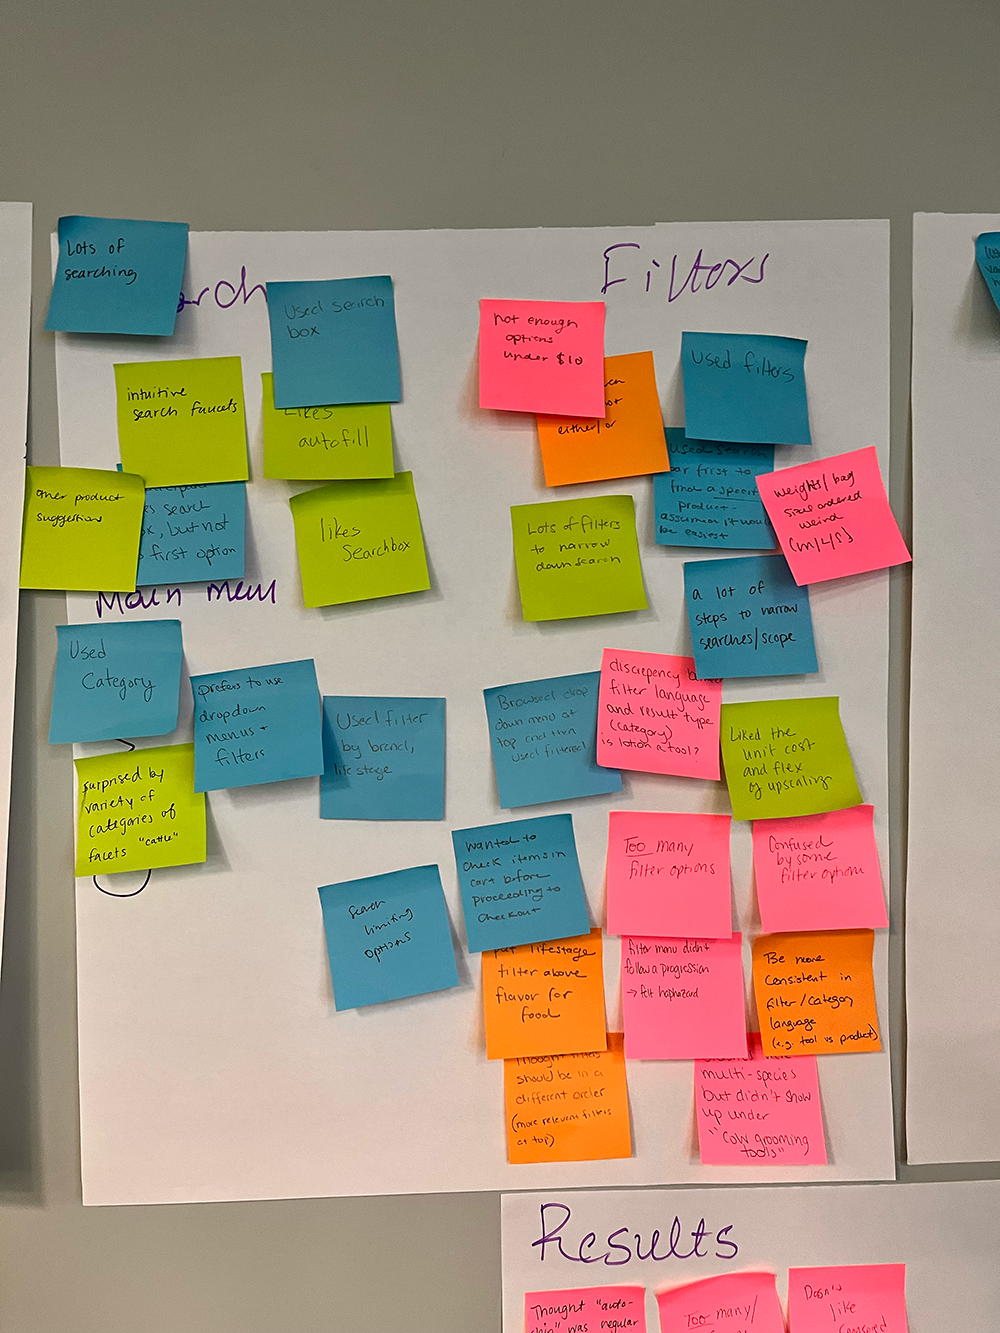 Lots of
searching
arch
Used search
box
intuitive
search faucets
Likes
autofill
other product
suggestions
search
, but not
first option
likes
Searchbox
Main menu
Used
Category
prefers to use
dropdown
menus +
filters
Used filter
by brand,
life stage
surprised by
variety of
categories of
facets "cattle"
Search
limiting
options
Filters
not enough
options
under $10
either/or
Used filters
used search
bar first to
find a specific
product -
assuming it would
be easiest
weights/bag
size ordered
weird
(m/L/S)
Lots of filters
to narrow
down search
a lot of
steps to narrow
searches/scope
Browsed drop
down menu at
top and then
used filters
discrepancy b/w
filter language
and result type
(category)
is lotion a tool?
Liked the
unit cost
and flex
of upscaling
Wanted to
check items in
cart before
proceeding to
checkout
Too many
filter options
Confused
by some
filter options
put lifestage
filter above
flavor for
food
filter menu didn't
follow a progression
→ felt haphazard
Be more
consistent in
filter/category
language
(e.g: tool vs product)
Thought filters
should be in a
different order
(more relevant filters
at top)
multi-species
but didn't show
up under
"cow grooming
tools"
Results
Thought "auto-
ship" was regular
Too many/
Doesn't
like